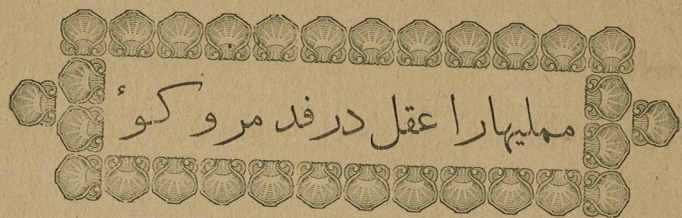 مملیهارا عقل درفد مر و کوۂ